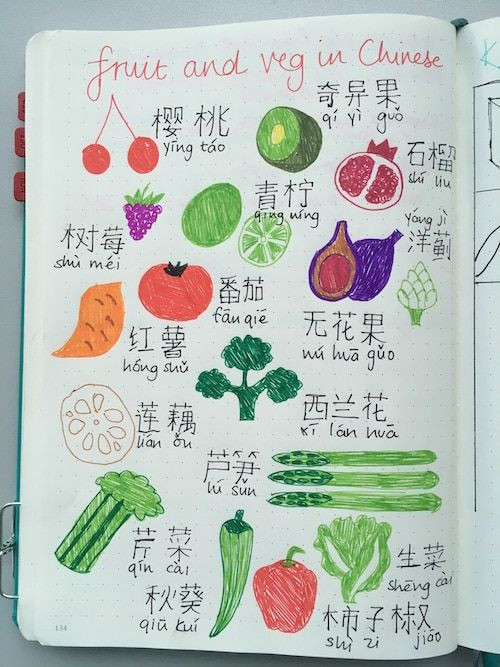 fruit and veg in Chinese
樱桃
yīng táo
奇异果
qí yì guǒ
石榴
shí liu
青柠
qīng níng
yáng jì
洋蓟
树莓
shù méi
番茄
fān qié
红薯
hóng shǔ
无花果
wú huā guǒ
莲藕
lián ǒu
西兰花
xī lán huā
芦笋
lú sǔn
芹菜
qín cài
生菜
shēng cài
秋葵
qiū kuí
柿子椒
shì zi jiāo
134